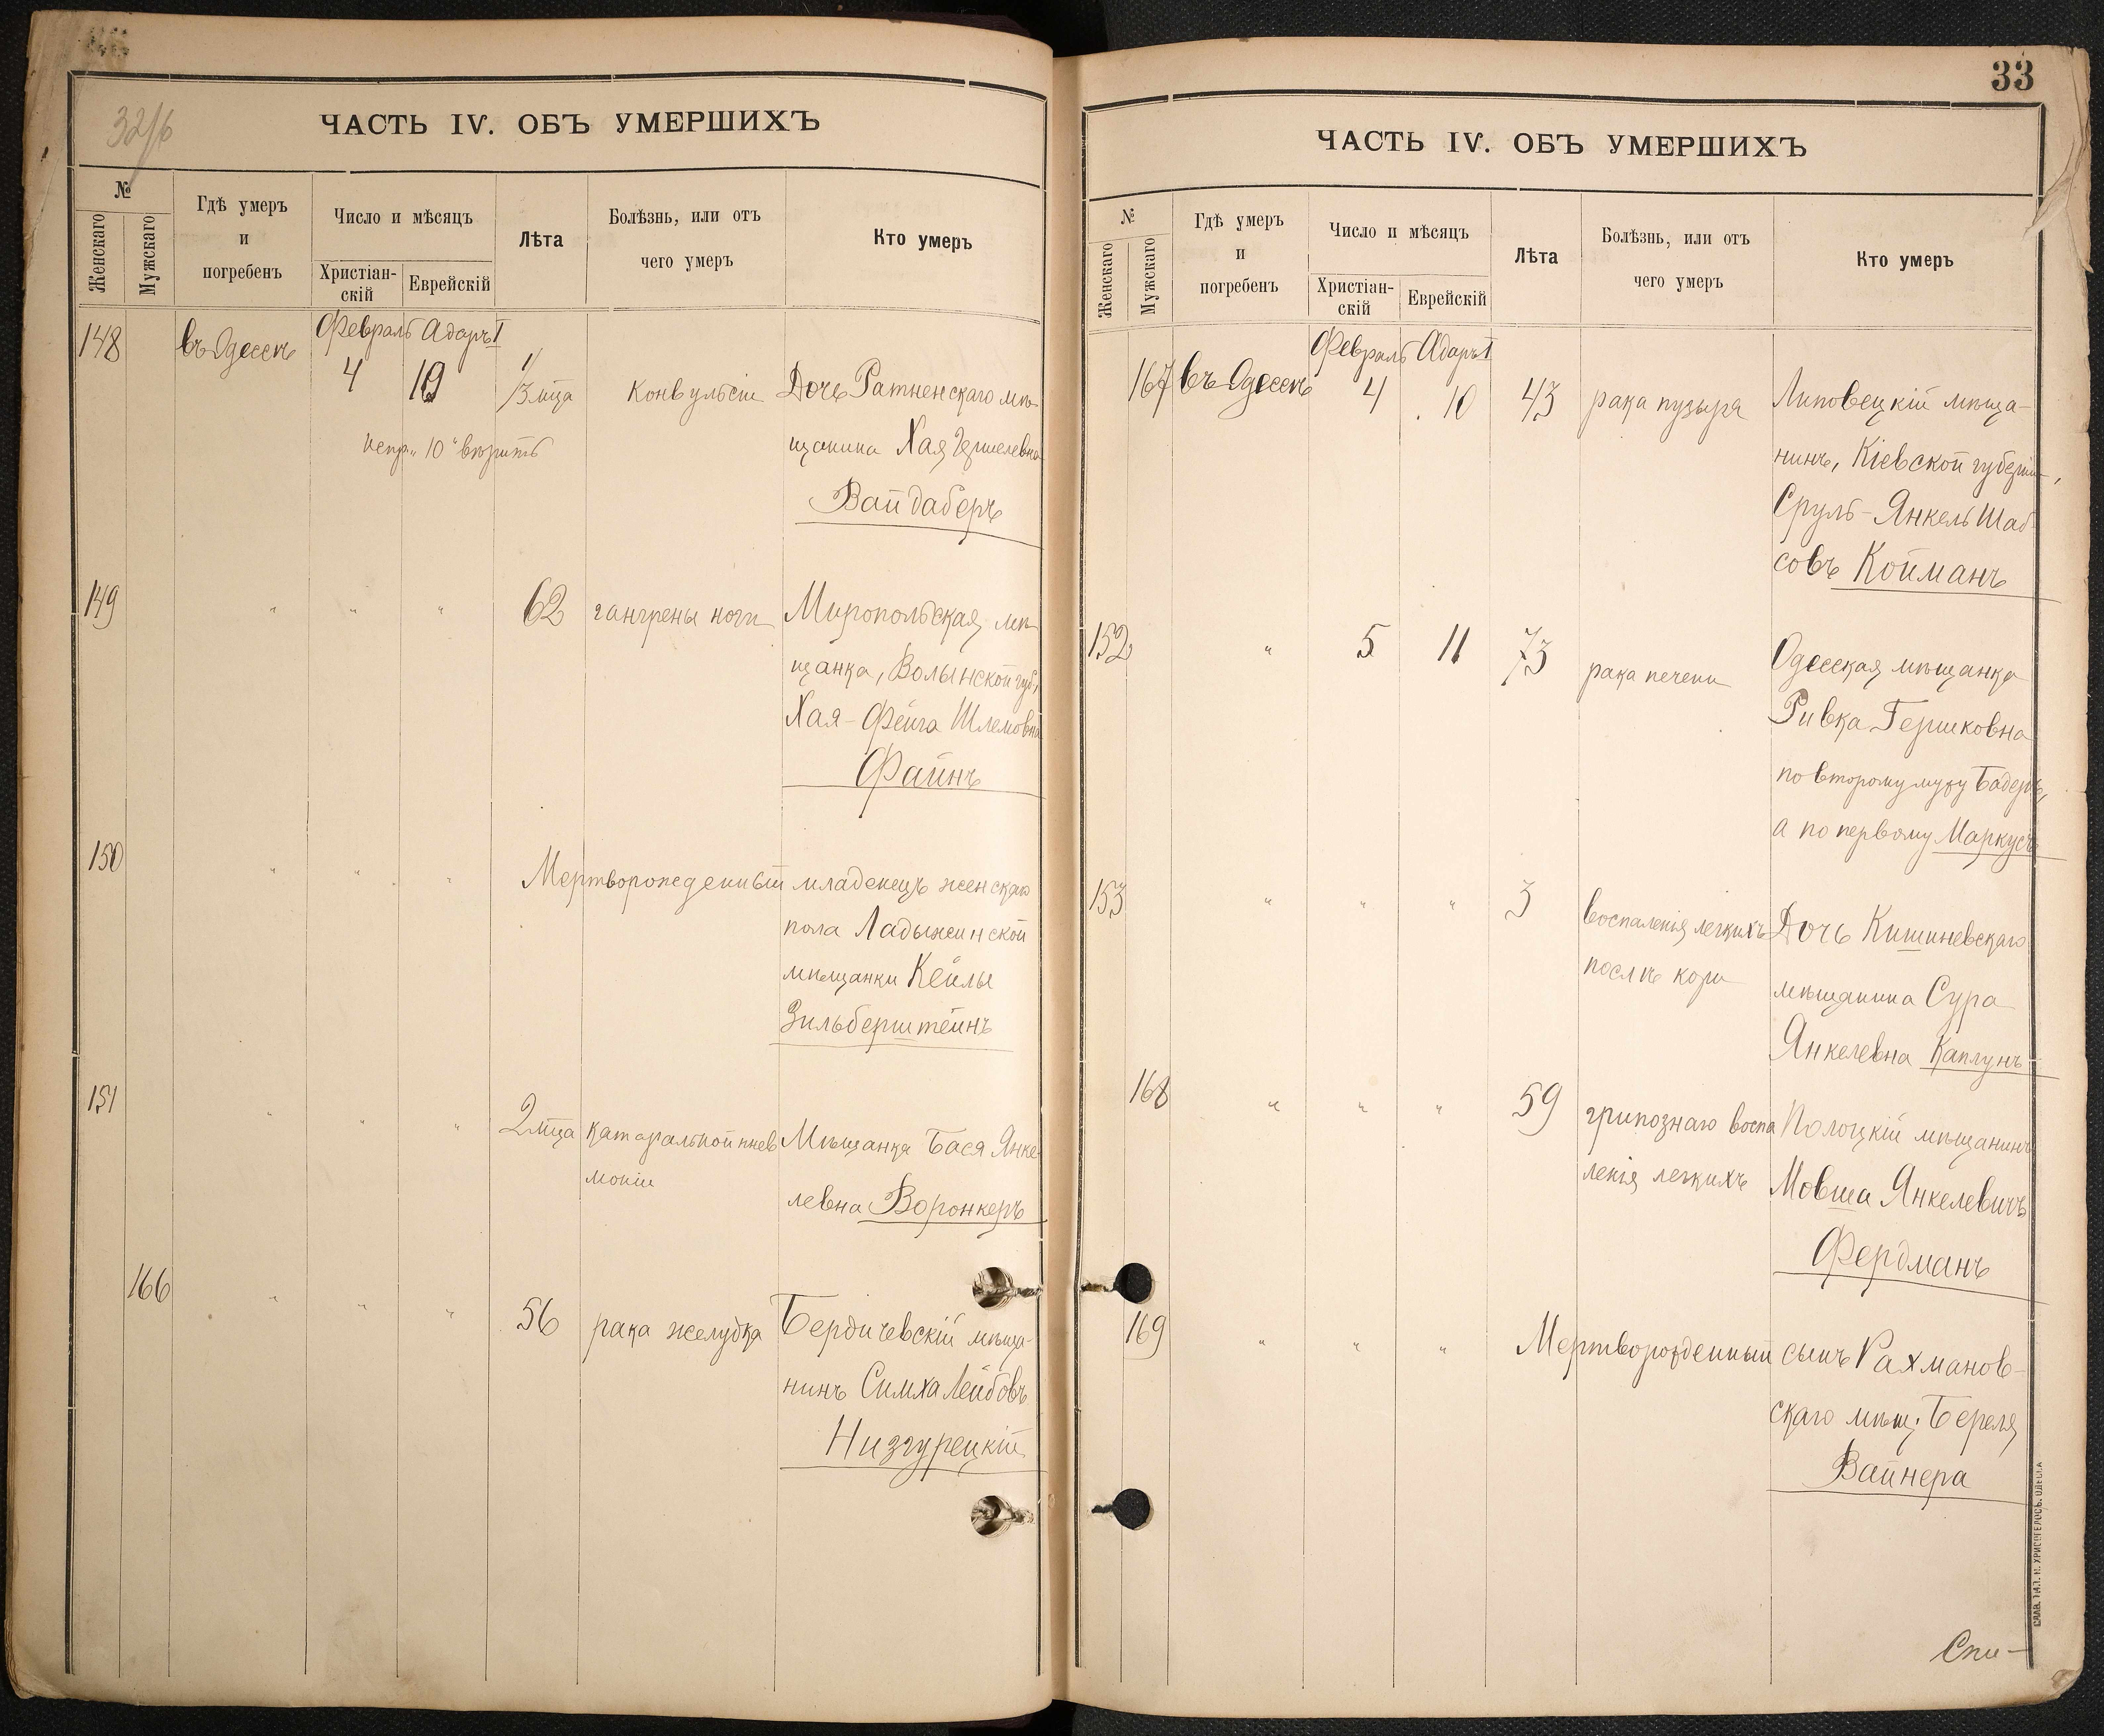 32/б
ЧАСТЬ IV. ОБЪ УМЕРШИХЪ
№
Женскаго
Мужскаго
Гдѣ умеръ
и
погребенъ
Число и мѣсяцъ
Христіан-
скій
Еврейскій
Лѣта
Болѣзнь, или отъ
чего умеръ
Кто умеръ
148 въ Одессѣ Февраль Адаръ I
4 10 1/3 мца Конвульсіи Дочь Ратненскаго мѣ-
щанина Хая Гершелевна
испр. „10“ вѣрить
Вайдаберъ
149 " " " 62 гангрены ноги Миропольская мѣ-
щанка, Волынской губ.,
Хая-Фейга Шлемовна
Файнъ
150 " " " Мертворожденный младенецъ женскаго
пола Ладыжинской
мѣщанки Кейлы
Зильберштейнъ
151 " " " 2 мца катаральной пнев Мѣщанка Бася Янке-
моніи левна Воронкеръ
166 " " " 56 рака желудка Бердичевскій мѣща-
нинъ Симха Лейбовъ
Низгурецкій
33
ЧАСТЬ IV. ОБЪ УМЕРШИХЪ
№
Женскаго
Мужскаго
Гдѣ умеръ
и
погребенъ
Число и мѣсяцъ
Христіан-
скій
Еврейскій
Лѣта
Болѣзнь, или отъ
чего умеръ
Кто умеръ
Февраль Адаръ I
167 въ Одессѣ 4 10 43 рака пузыря Липовецкій мѣща-
нинъ, Кіевской губерніи,
Сруль-Янкель Шаб-
совъ Койманъ
152 " 5 11 73 рака печени Одесская мѣщанка
Ривка Гершковна
по второму мужу Бадеръ,
а по первому Маркусъ
153 " " " 3 воспаленія легкихъ Дочь Кишиневскаго
послѣ кори мѣщанина Сура
Янкелевна Каплунъ
168 " " " 59 грипознаго воспа Полоцкій мѣщанинъ
ленія легкихъ Мовша Янкелевичъ
Фердманъ
169 " " " Мертворожденный сынъ Рахманов-
скаго мѣщ. Береля
Вайнера
Спи-